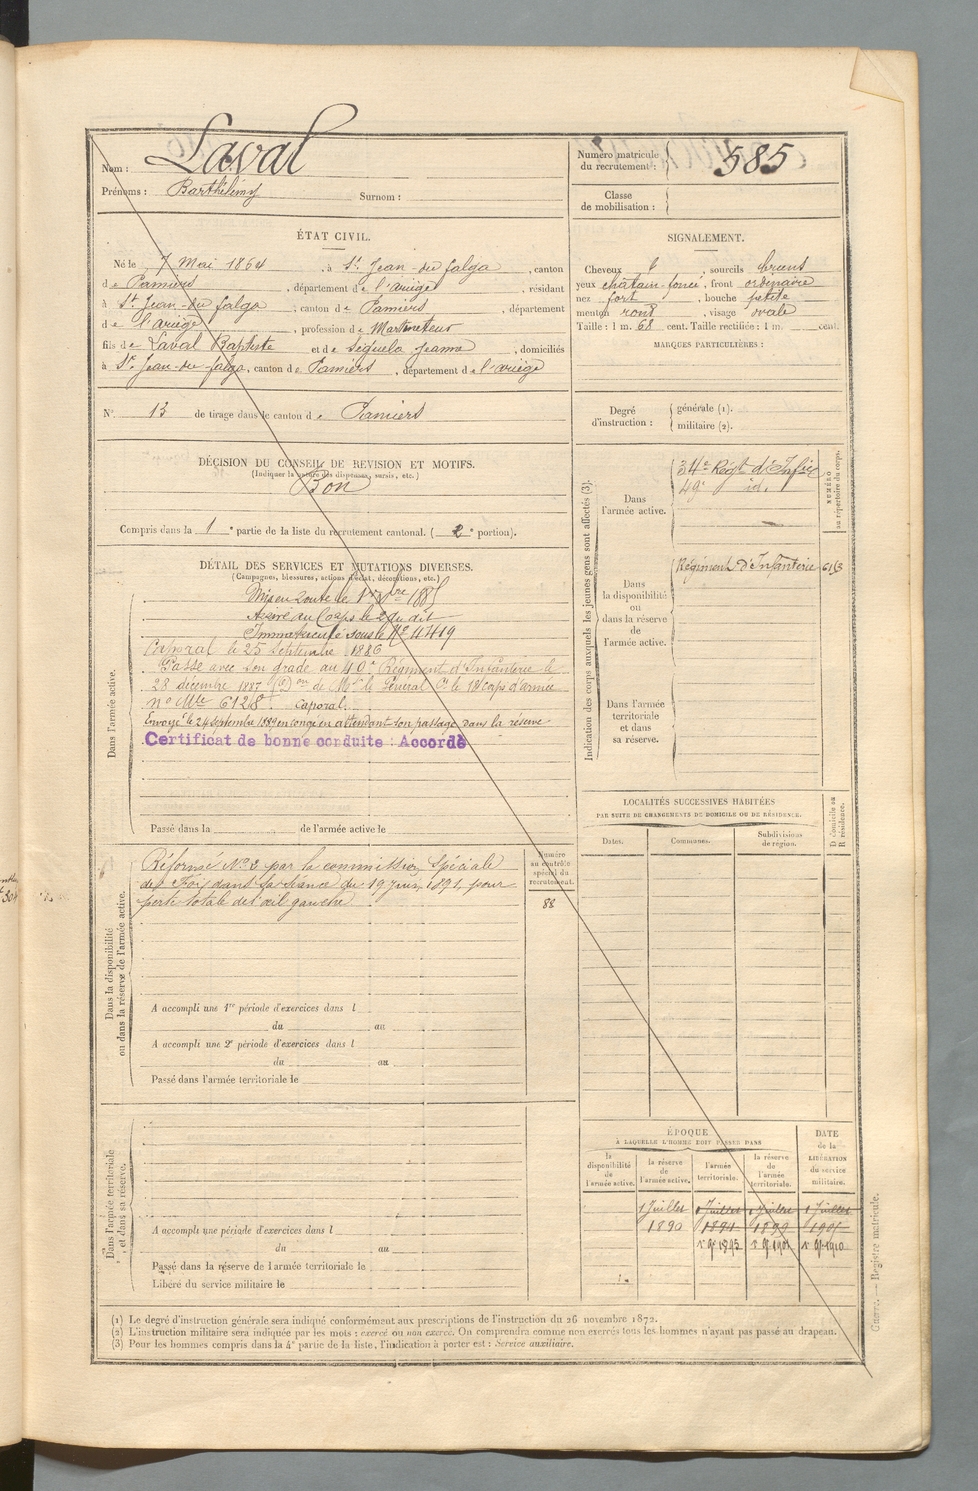 Nom : Laval
Prénoms : Barthélemy Surnom :
Numéro matricule du recrutement : 585
Classe de mobilisation :
ÉTAT CIVIL.
Né le 7 Mai 1864, à St Jean-du falga, canton
de Pamiers, département de l'ariège, résidant
à St Jean-du falga, canton de Pamiers, département
de l'ariège, profession de Martineteur
fils de Laval Baptiste et de Séguela Jeanne, domiciliés
à St Jean-du falga, canton de Pamiers, département de l'ariège
N° 13 de tirage dans le canton de Pamiers
SIGNALEMENT.
Cheveux, sourcils bruns
yeux châtain foncé, front ordinaire
nez fort, bouche petite
menton rond, visage ovale
Taille : 1 m. 68 cent. Taille rectifiée : 1 m. cent.
MARQUES PARTICULIÈRES :
Degré d'instruction : générale (1).
militaire (2).
DÉCISION DU CONSEIL DE REVISION ET MOTIFS.
(Indiquer la nature des dispenses, sursis, etc.)
Bon
Compris dans la 1e partie de la liste du recrutement cantonal. (2e portion).
DÉTAIL DES SERVICES ET MUTATIONS DIVERSES.
(Campagnes, blessures, actions d'éclat, décorations, etc.)
Dans l'armée active.
Mis en route le 1er Xbre 1885
Arrivé au Corps le 2 du dit
Immatriculé sous le No 11419
Caporal le 25 Septembre 1886
Passé avec son grade au 40e Régiment d'Infanterie le
28 décembre 1887 (D)on de Mr le Général Ct le 18e corps d'armée
no Mle 6128. caporal.
Envoyé le 24 septembre 1889 en congé en attendant son passage dans la réserve
Certificat de bonne conduite : Accordé
Passé dans la de l'armée active le
Indication des corps auxquels les jeunes gens sont affectés (3).
NUMÉRO au répertoire du corps.
Dans l'armée active.
34e Régt d'Infrie
49e id.
Dans la disponibilité ou dans la réserve de l'armée active.
Régiment d'Infanterie
Dans l'armée territoriale et dans sa réserve.
LOCALITÉS SUCCESSIVES HABITÉES
PAR SUITE DE CHANGEMENTS DE DOMICILE OU DE RÉSIDENCE.
D domicile ou R résidence.
Dates. Communes. Subdivisions de région.
Dans la disponibilité ou dans la réserve de l'armée active.
Réformé No 2 par la commission Spéciale
de Foix dans sa séance du 19 Juin 1891 pour
perte totale de l'œil gauche
Numéro au contrôle spécial du recrutement.
88
A accompli une 1re période d'exercices dans l
du au
A accompli une 2e période d'exercices dans l
du au
Passé dans l'armée territoriale le
Dans l'armée territoriale et dans sa réserve.
A accompli une période d'exercices dans l
du au
Passé dans la réserve de l'armée territoriale le
Libéré du service militaire le
ÉPOQUE
À LAQUELLE L'HOMME DOIT PASSER DANS
DATE de la LIBÉRATION du service militaire.
la disponibilité de l'armée active.
la réserve de l'armée active.
l'armée territoriale.
la réserve de l'armée territoriale.
1 Juillet 1 Juillet 1 Juillet 1 Juillet
1890
(1) Le degré d'instruction générale sera indiqué conformément aux prescriptions de l'instruction du 26 novembre 1872.
(2) L'instruction militaire sera indiquée par les mots : exercé ou non exercé. On comprendra comme non exercés tous les hommes n'ayant pas passé au drapeau.
(3) Pour les hommes compris dans la 4e partie de la liste, l'indication à porter est : Service auxiliaire.
Guerre. — Registre matricule.